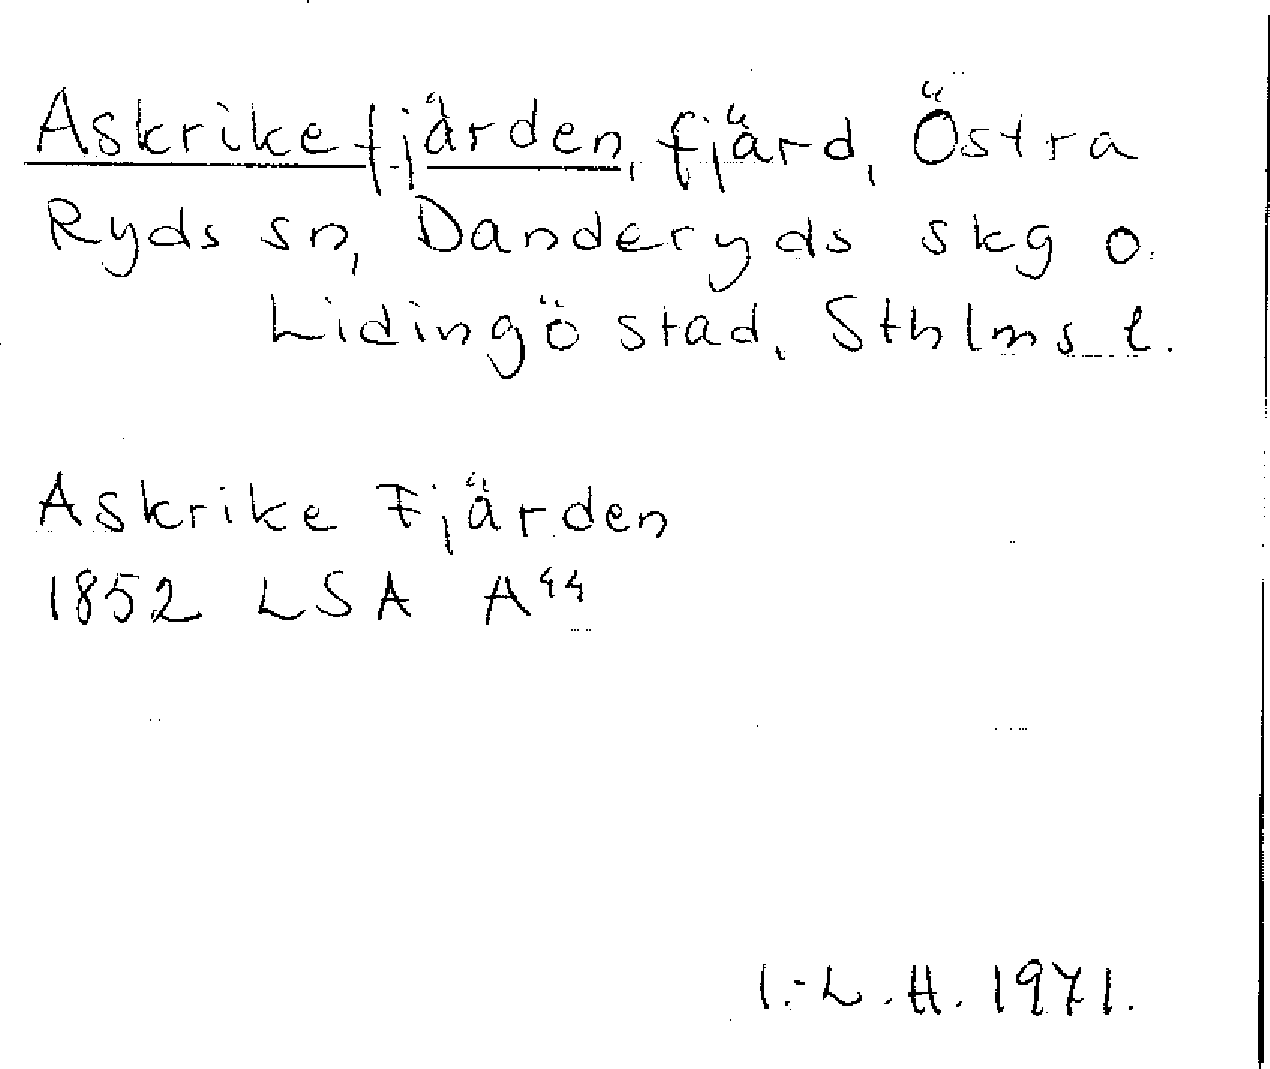 Askrikefjärden, fjärd, Östra
Ryds sn, Danderyds skg o.
Lidingö stad, Sthlms l.
Askrike Fjärden
1852 LSA A⁴⁴
I.-L.H. 1971.